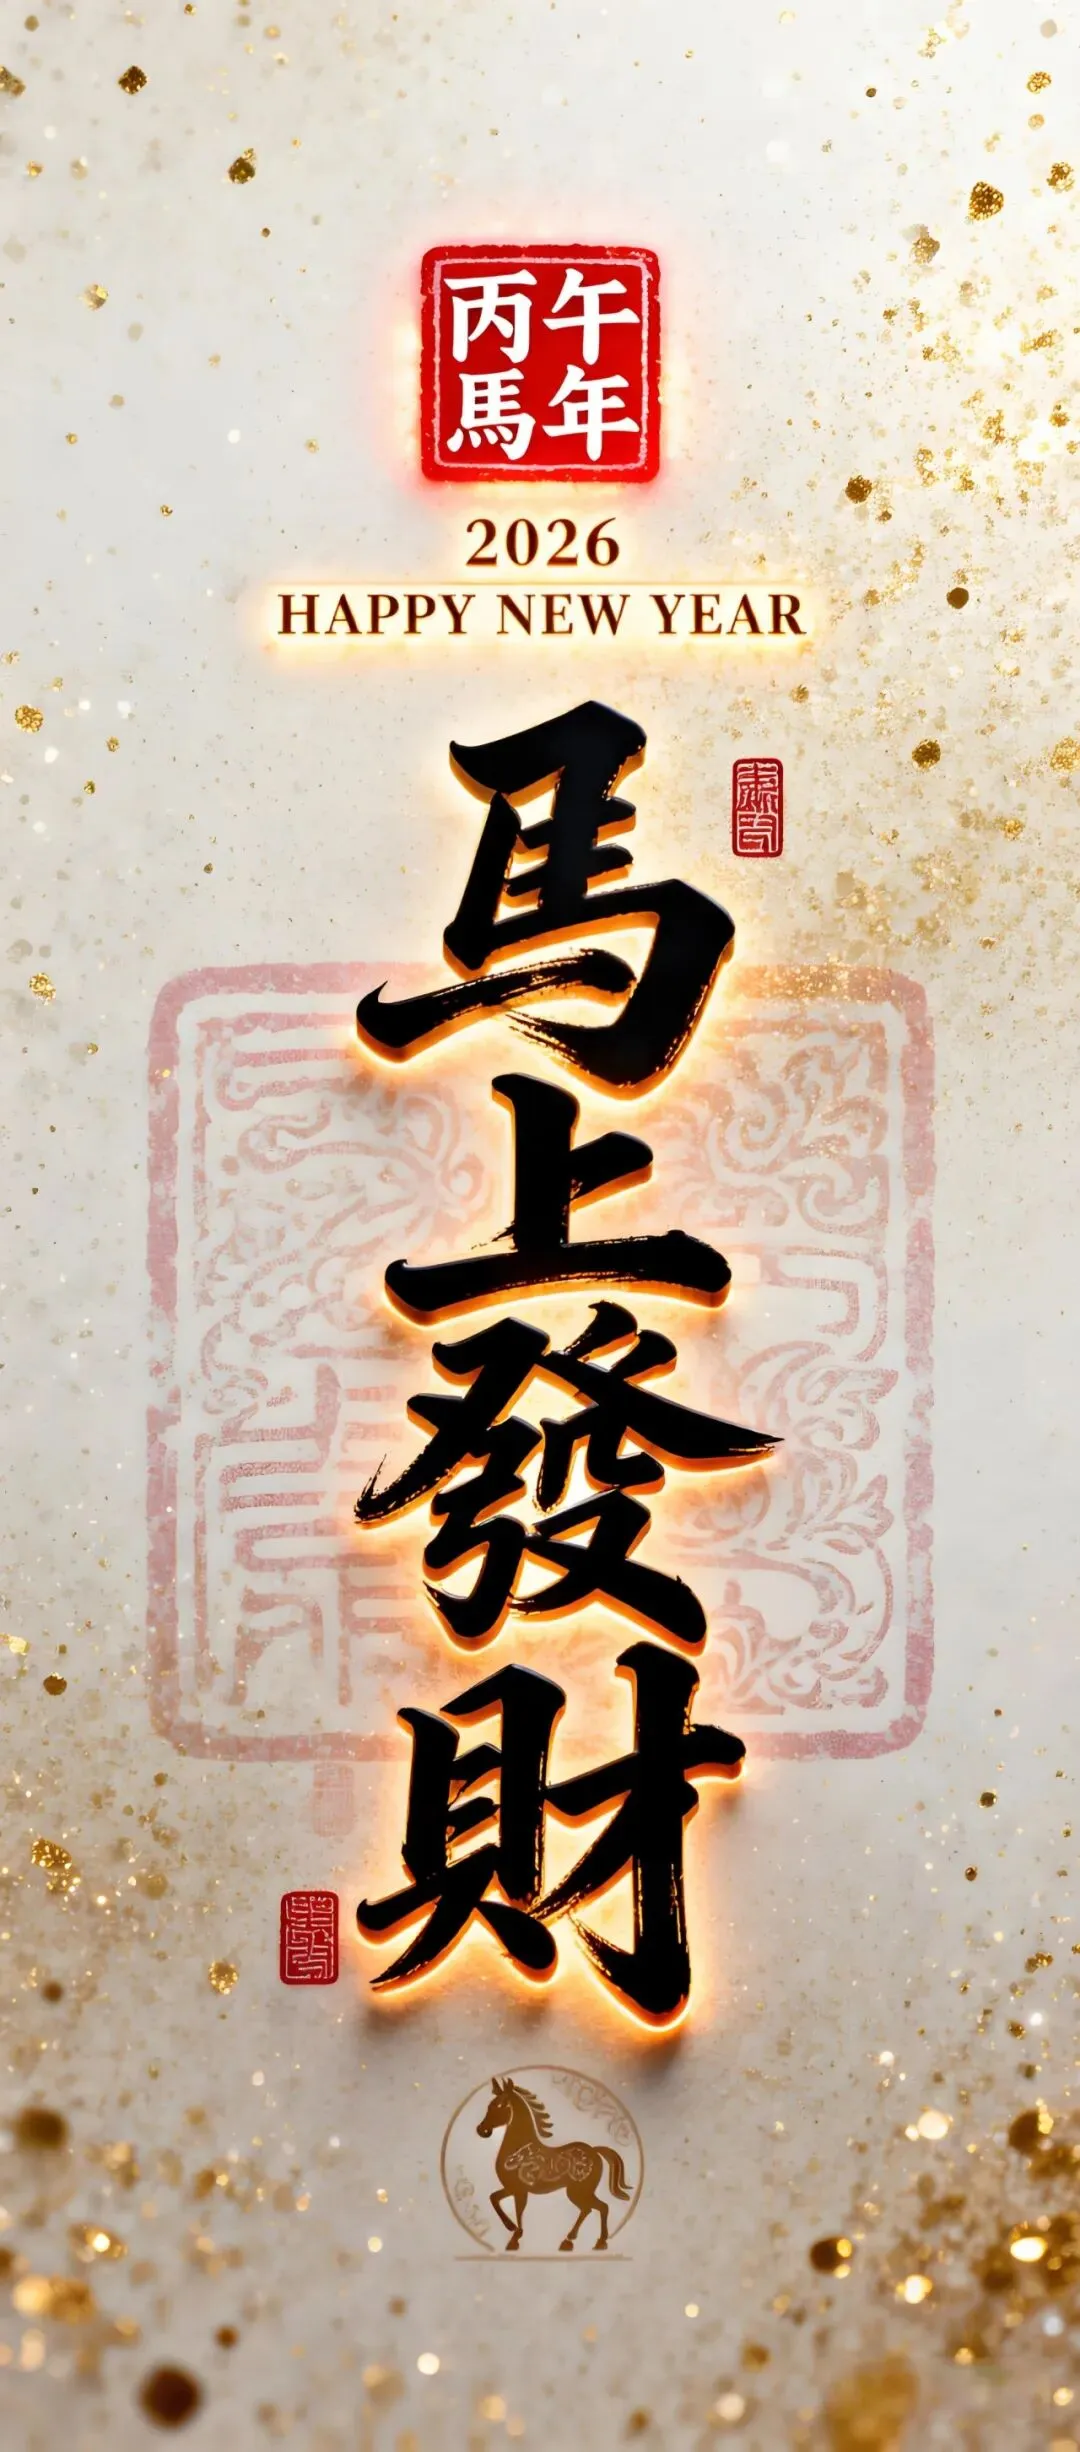 丙午
馬年
2026
HAPPY NEW YEAR
馬上發財